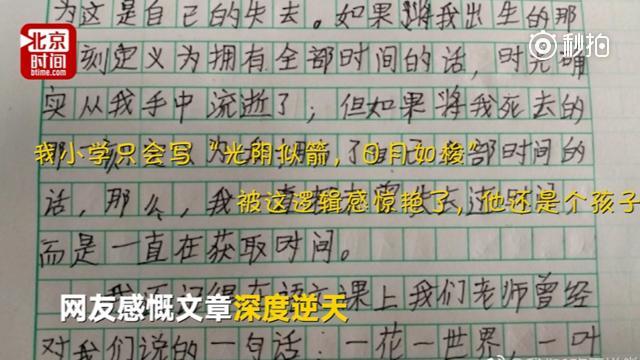 为这是自己的失去。如果将我出生的那
北京时间
btime.com
秒拍
刻定义为拥有全部时间的话，时光确
实从我手中流逝了；但如果将我死去的
部时间的
我小学只会写“光阴似箭，日月如梭”
话，那么，我
被这逻辑感惊艳了，他还是个孩子
而是一直在获取时间。
课上我们老师曾经
网友感慨文章深度逆天
对我们说的一句话：一花一世界，一叶